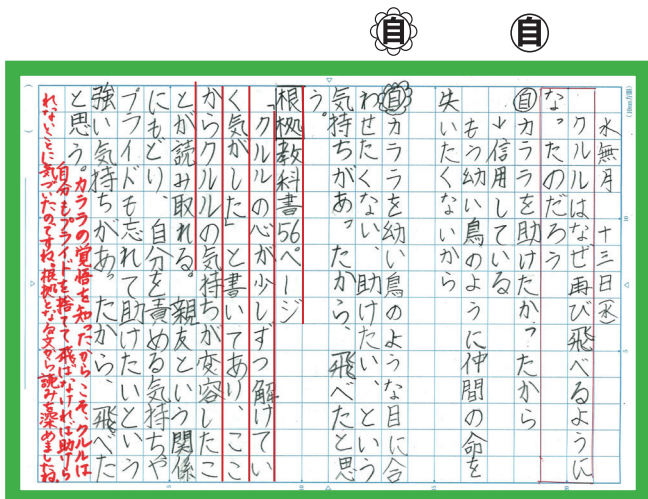 自 自
水無月 十三日(水)
クルルはなぜ再び飛べるように
なったのだろう
自カララを助けたかったから
↓信用している
もう幼い鳥のように仲間の命を
失いたくないから
自カララを幼い鳥のような目に合
わせたくない、助けたい、という
気持ちがあったから、飛べたと思
う。
根拠教科書56ページ
「クルルの心が少しずつ解けてい
く気がした」と書いてあり、ここ
からクルルの気持ちが変容したこ
とが読み取れる。親友という関係
にもどり、自分を責める気持ちや
プライドも忘れて助けたいという
強い気持ちがあったから、飛べた
と思う。
カララの覚悟を知ったからこそ、クルルは
自分もプライドを捨てて飛ばなければ助けら
れないことに気づいたのですね。根拠となる文から読みを深めましたね。